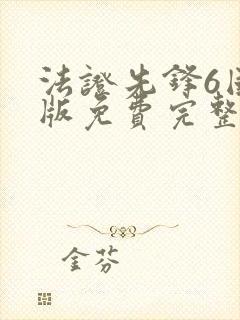 法證先鋒6國
版免費完整
金芬